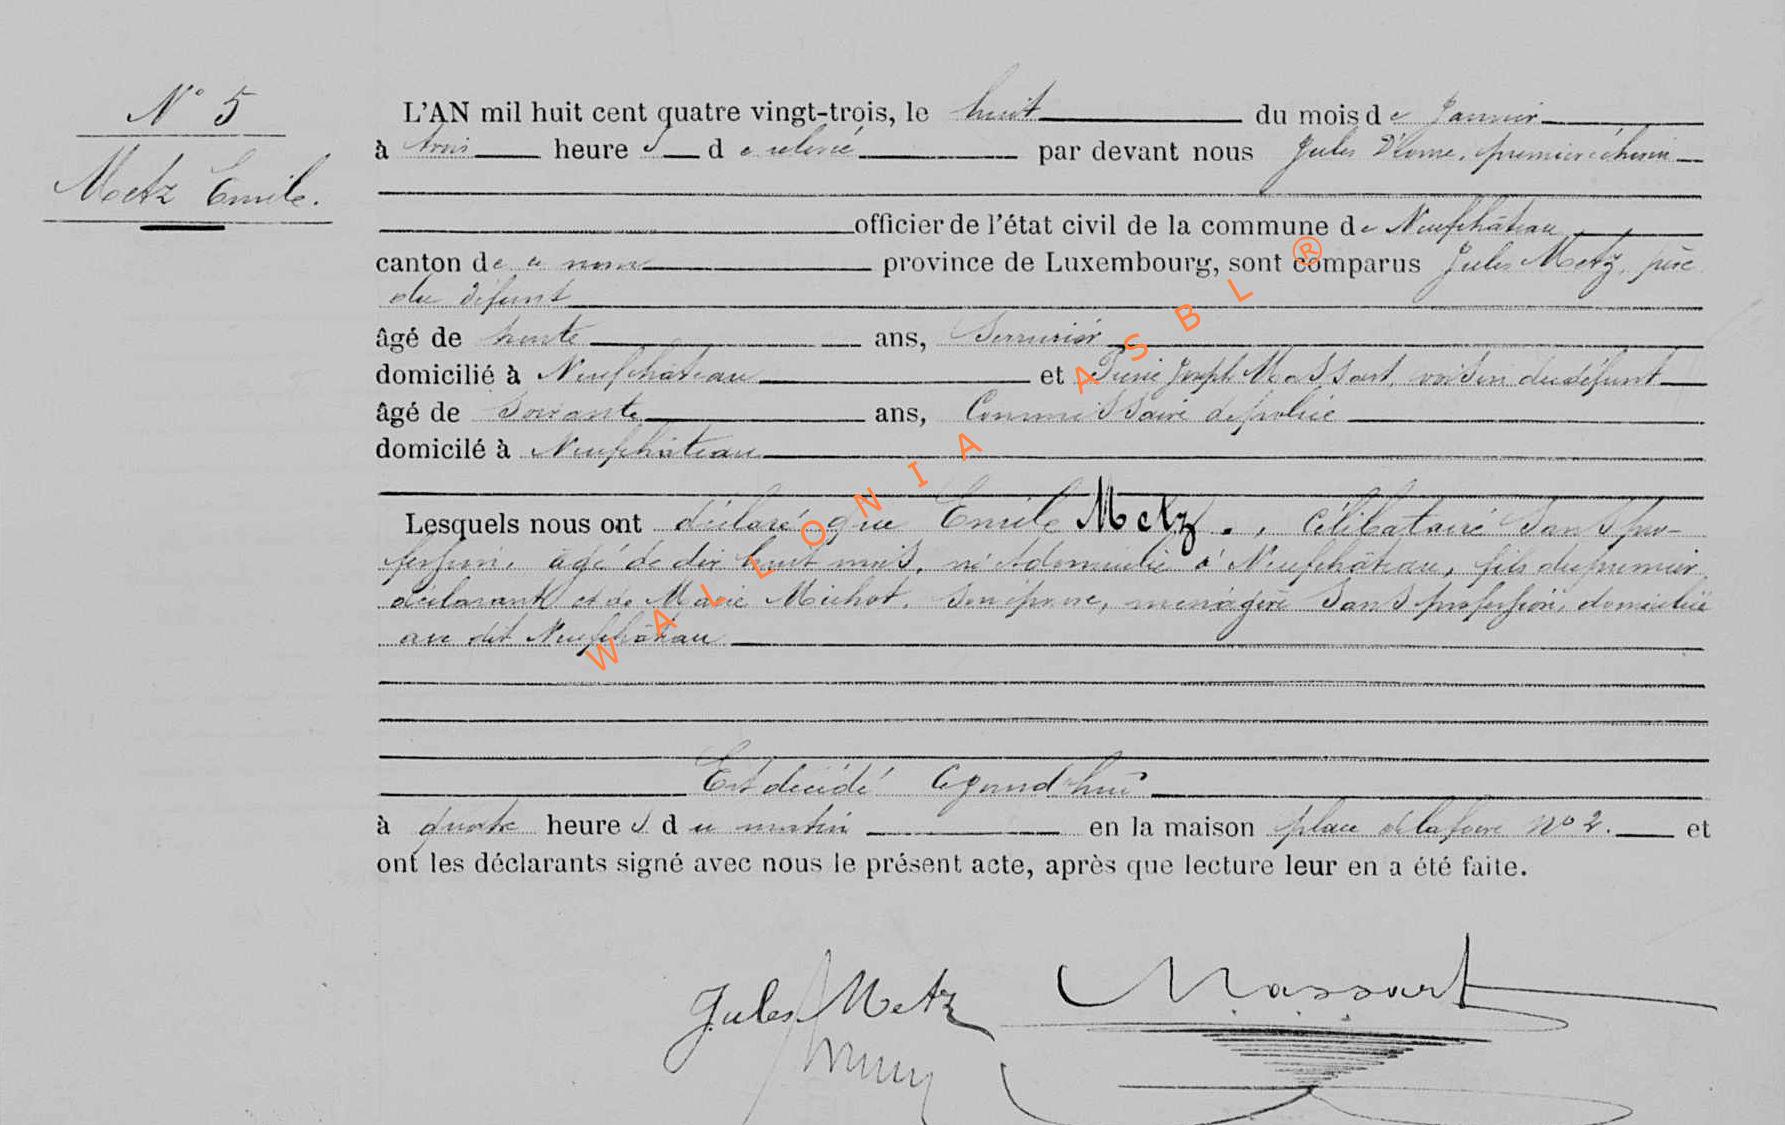 N° 5
Metz Emile.
L'AN mil huit cent quatre vingt-trois, le huit du mois de Janvier
à trois heures de relevé par devant nous Jules premier échevin
officier de l'état civil de la commune de Neufchâteau
canton de ce nom province de Luxembourg, sont comparus Jules Metz, père
du défunt
âgé de trente ans, Serrurier
domicilié à Neufchâteau et Pierre Joseph Massart, voisin du défunt
âgé de Soixante ans, Commissaire de police
domicilé à Neufchâteau
Lesquels nous ont déclaré que Emile Metz, célibataire Sans pro-
fession, âgé de dix huit mois, né & domicilié à Neufchâteau, fils du premier
déclarant et de Marie Michot, Son épouse, ménagère Sans profession, domiciliée
au dit Neufchâteau
Est décédé Cejourd'hui
à quatre heures du matin en la maison place de la foire N° 2. et
ont les déclarants signé avec nous le présent acte, après que lecture leur en a été faite.
Jules Metz Massart
WALLONIA ASBL ®